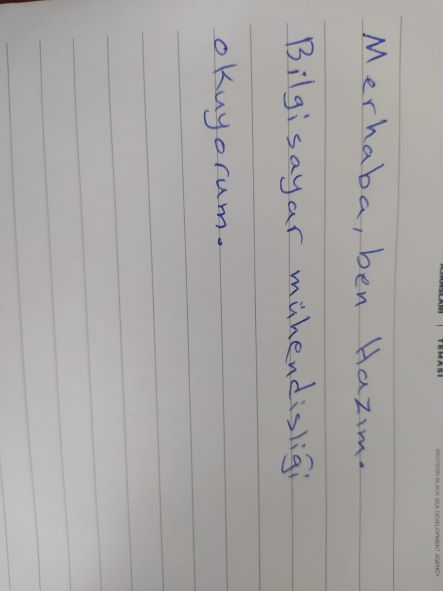 AJANSLARI | TEMASI
WESTERN BLACK SEA DEVELOPMENT AGENCY
Merhaba, ben Hazım.
Bilgisayar mühendisliği
okuyorum.